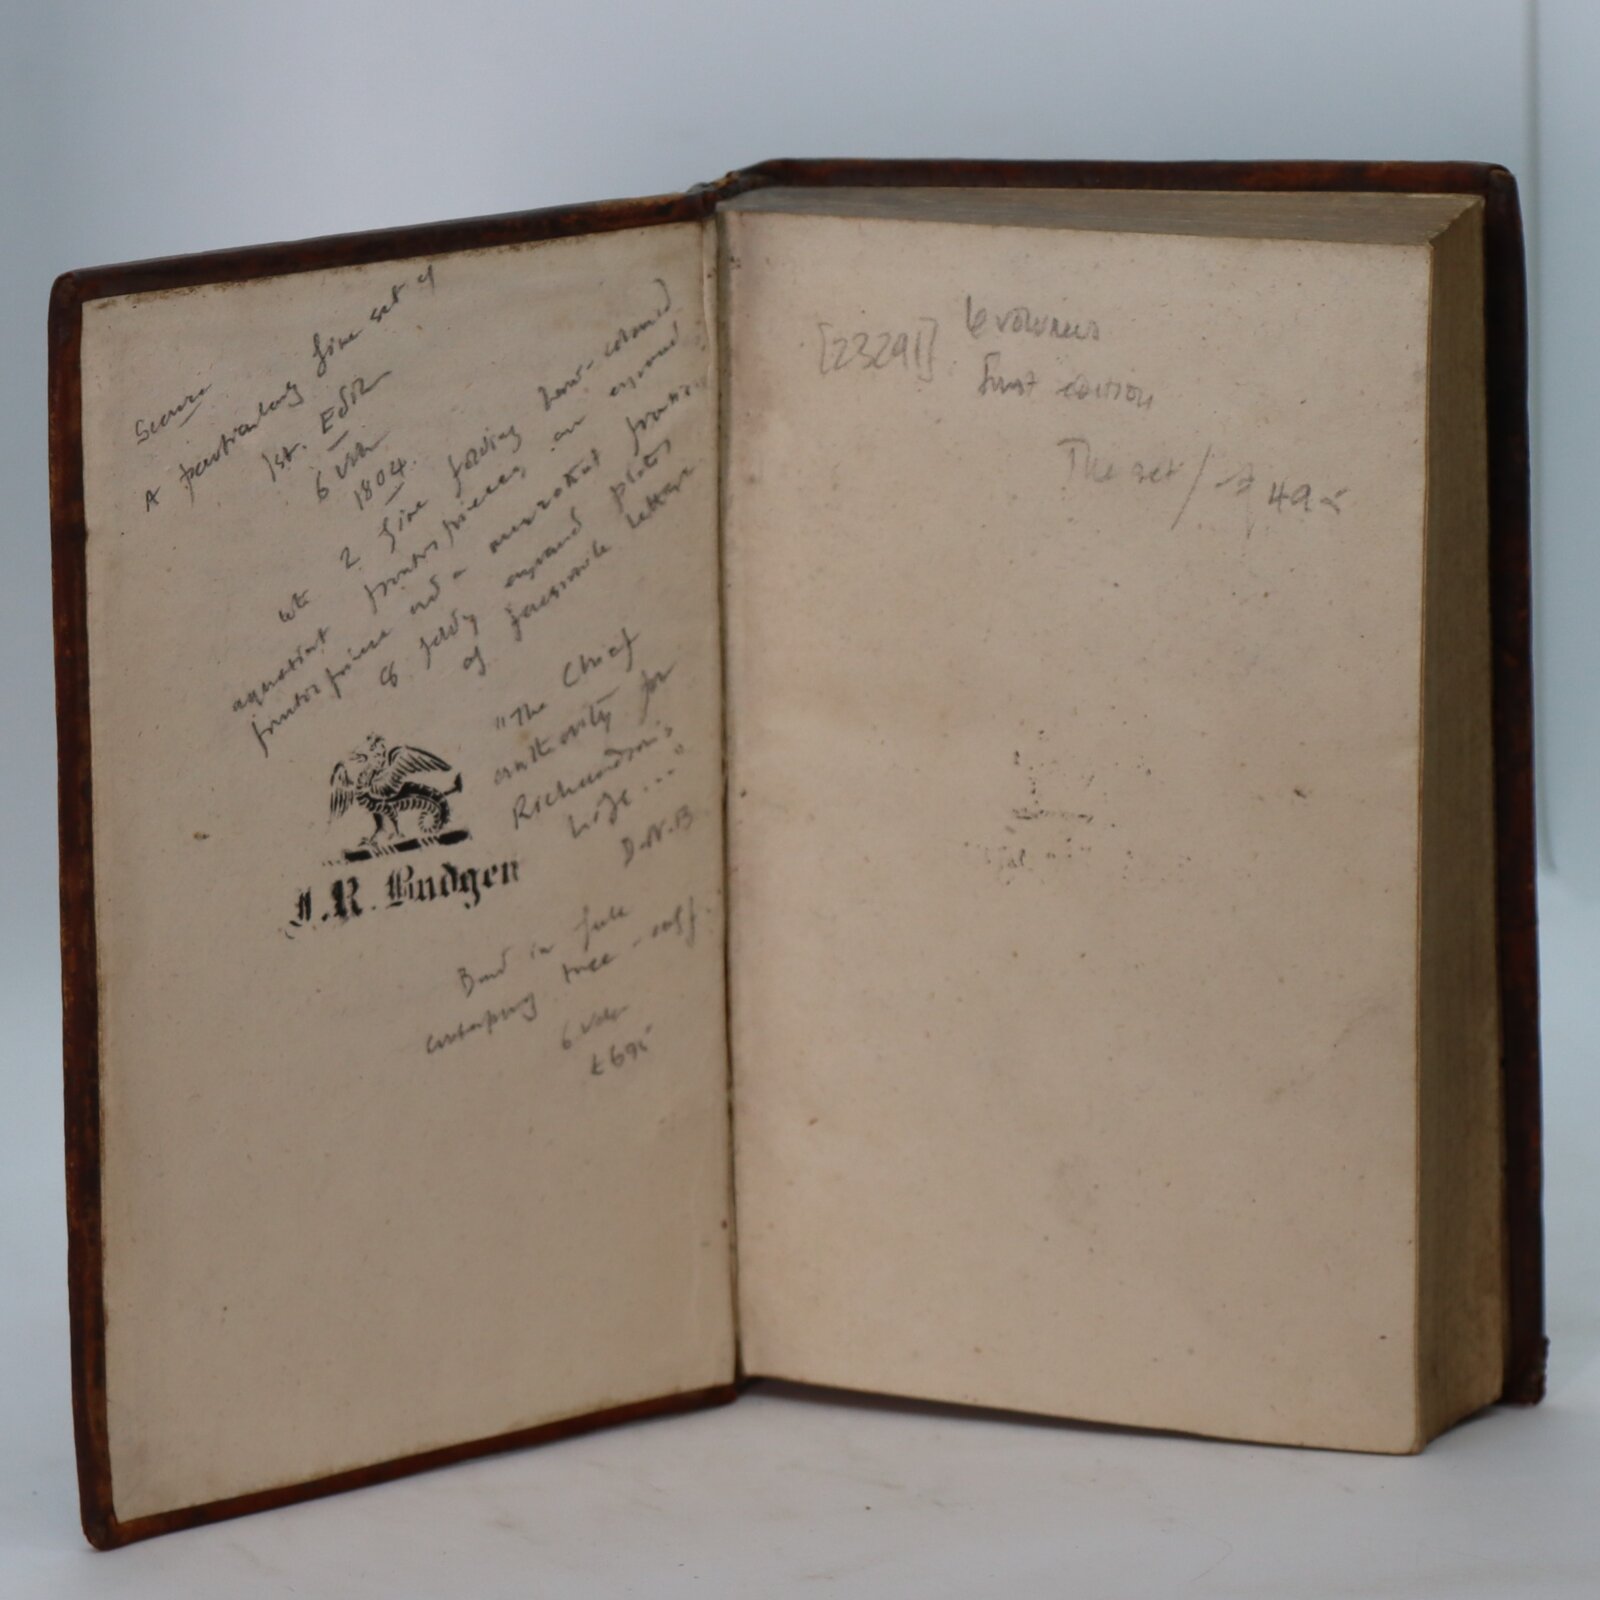 Scarce
A particularly fine set of
1st. Edit
6 vols
1804.
with 2 fine folding hand-coloured
aquatint frontispieces, an engraved
frontispiece and a mezzotint frontis
& folding engraved plates
of facsimile letters
"The Chief
authority for
Richardson's
life ..."
D.N.B.
J.R. Budgen
Bound in full
contemporary tree-calf.
6 vols
£695
[23291] 6 volumes
First edition
The set / 495